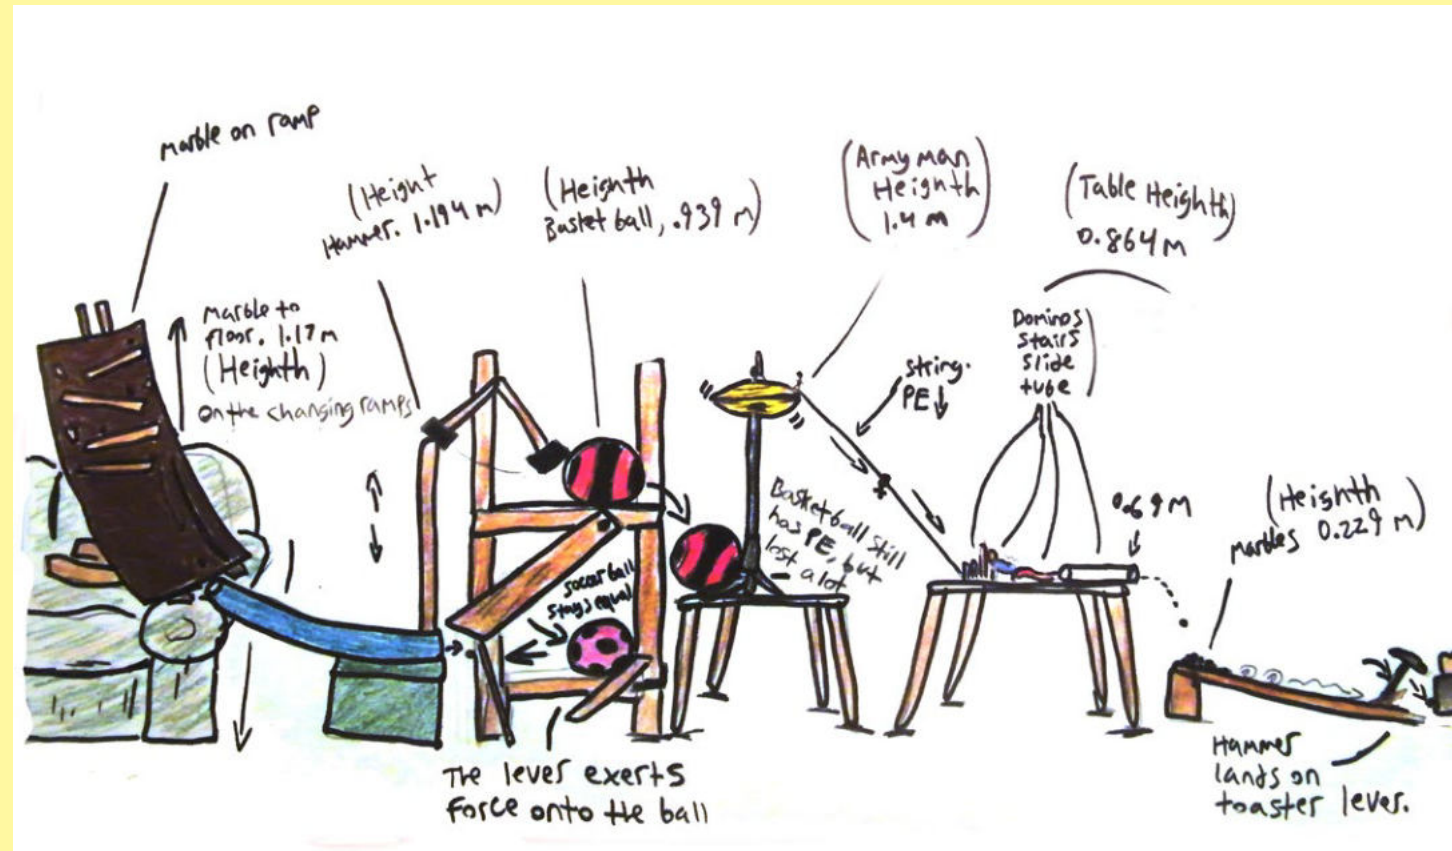 marble on ramp
(Height
Hammer. 1.194 m)
(Heighth
Basket ball, .939 m)
(Army man
Heighth
1.4 m)
(Table Heighth)
0.864 m
marble to
floor. 1.17 m
(Heighth)
on the changing ramps
string.
PE↓
Dominos
stairs
slide
tube
Basketball still
has PE, but
lost a lot
0.69 M
(Heighth
marbles 0.229 m)
soccer ball
stays equal
The lever exerts
force onto the ball
Hammer
lands on
toaster lever.